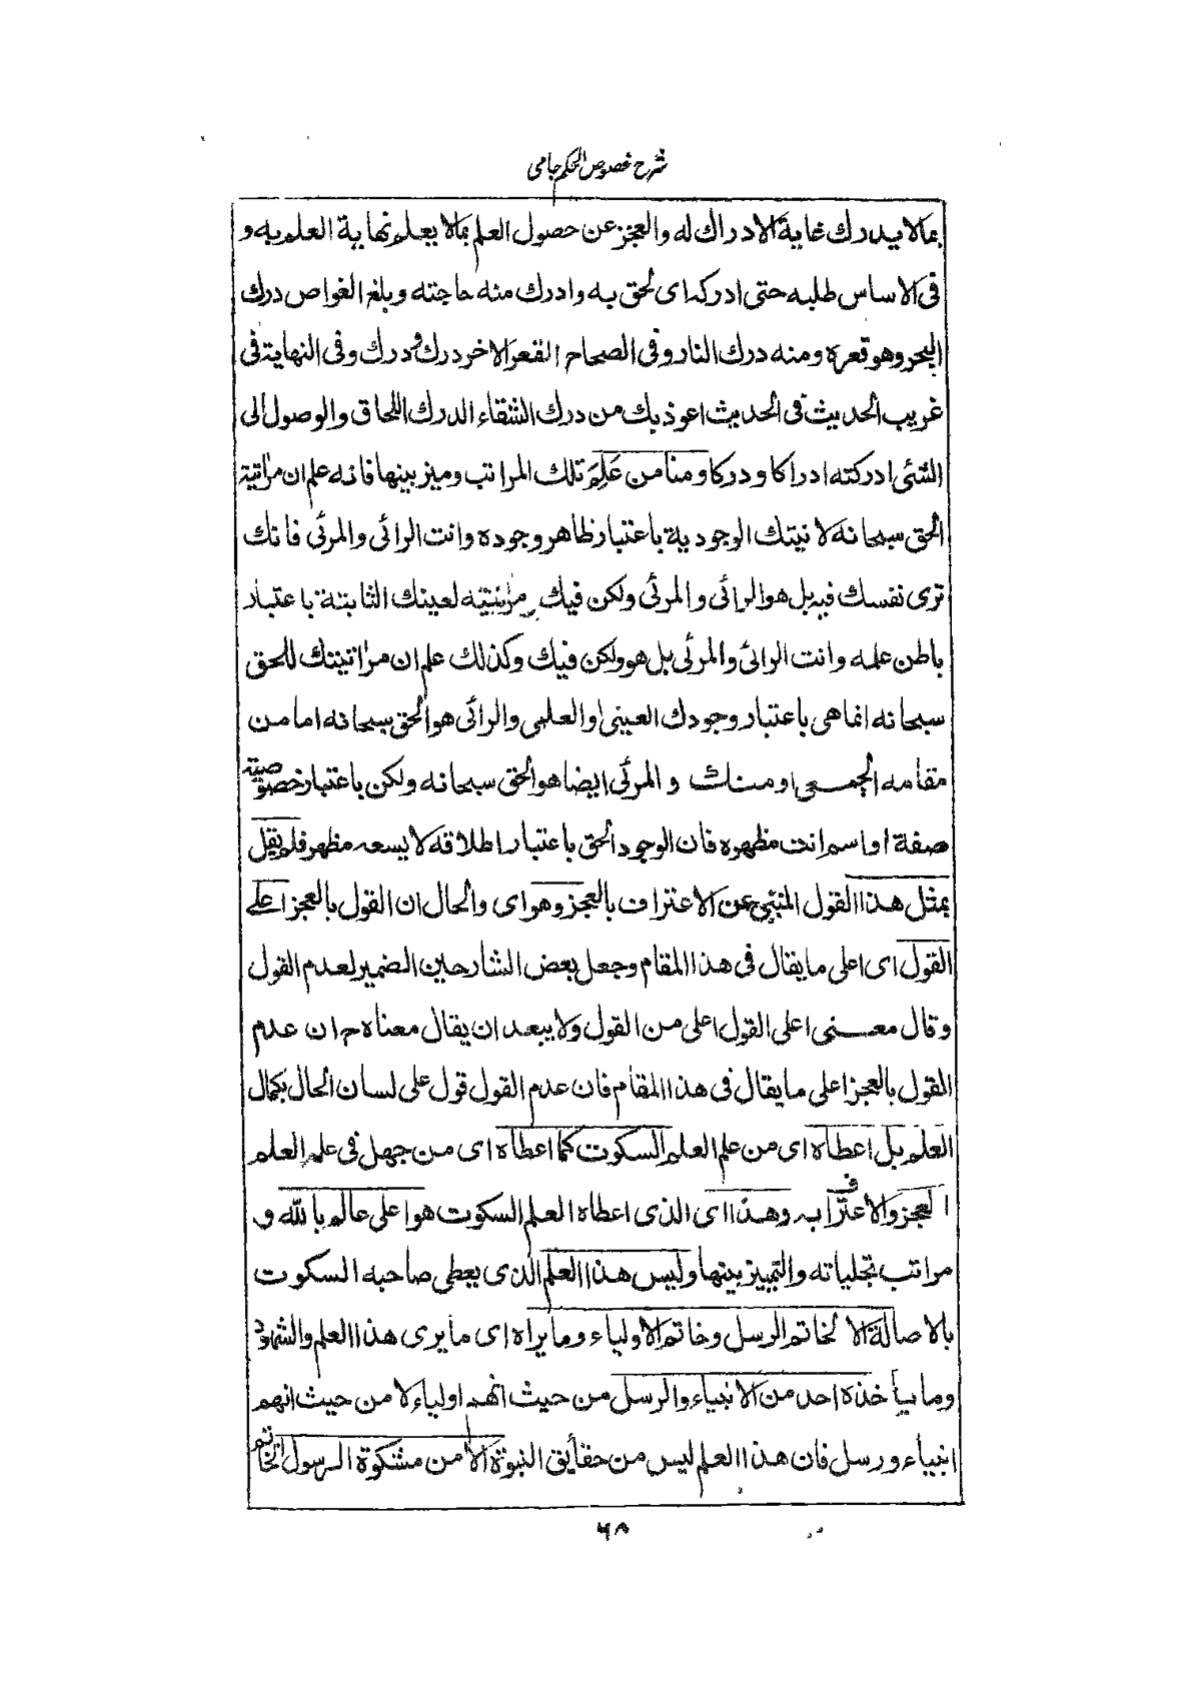 شرح فصوص الحكم جامى
بمالا يدرك غاية الادراك له والعجز عن حصول العلم بمالا يعلم نهاية العلم به و
فى الاساس طلبه حتى ادركه اى لحق به وادرك منه حاجته وبلغ الغواص درك
البحر وهو قعره ومنه درك النار وفى الصحاح القعر الاخر درك ودرك وفى النهاية فى
غريب الحديث فى الحديث اعوذ بك من درك الشقاء الدرك اللحاق والوصول الى
الشئى ادركته ادراكا ودركا ومنا من عَلِمَ تلك المراتب وميز بينها فانه علم ان مراتية
الحق سبحانه لانيتك الوجودية باعتبار ظاهر وجوده وانت الرائى والمرئى فانك
ترى نفسك فيه بل هو الرائى والمرئى ولكن فيك ومراتيته لعينك الثابتة باعتبار
باطن علمه وانت الرائى والمرئى بل هو ولكن فيك وكذلك علم ان مراتيتك للحق
سبحانه انما هى باعتبار وجودك العينى او العلمى والرائى هو الحق سبحانه اما من
مقامه الجمعى او منك والمرئى ايضا هو الحق سبحانه ولكن باعتبار خصوصية
صفة او اسم انت مظهره فان الوجود الحق باعتبار اطلاقه لا يسعه مظهر فلم يقل
بمثل هذا القول المنبئ عن الاعتراف بالعجز وهو اى والحال ان القول بالعجز اعلى
القول اى اعلى ما يقال فى هذا المقام وجعل بعض الشارحين الضمير لعدم القول
وقال معنى اعلى القول اعلى من القول ولا يبعد ان يقال معناه ح ان عدم
القول بالعجز اعلى ما يقال فى هذا المقام فان عدم القول قول على لسان الحال بكمال
العلم بل اعطاه اى من علم العلم السكوت كما اعطاه اى من جهل فى علم العلم
العجز والاعتراف به وهذا اى الذى اعطاه العلم السكوت هو اعلى عالم بالله و
مراتب تجلياته والتمييز بينها وليس هذا العلم الذى يعطى صاحبه السكوت
بالاصالة الا لخاتم الرسل وخاتم الاولياء وما يراه اى ما يرى هذا العلم والشهود
وما يأخذه احد من الانبياء والرسل من حيث انهم اولياء لا من حيث انهم
انبياء ورسل فان هذا العلم ليس من حقائق النبوة الا من مشكوة الرسول الخاتم
٦٨